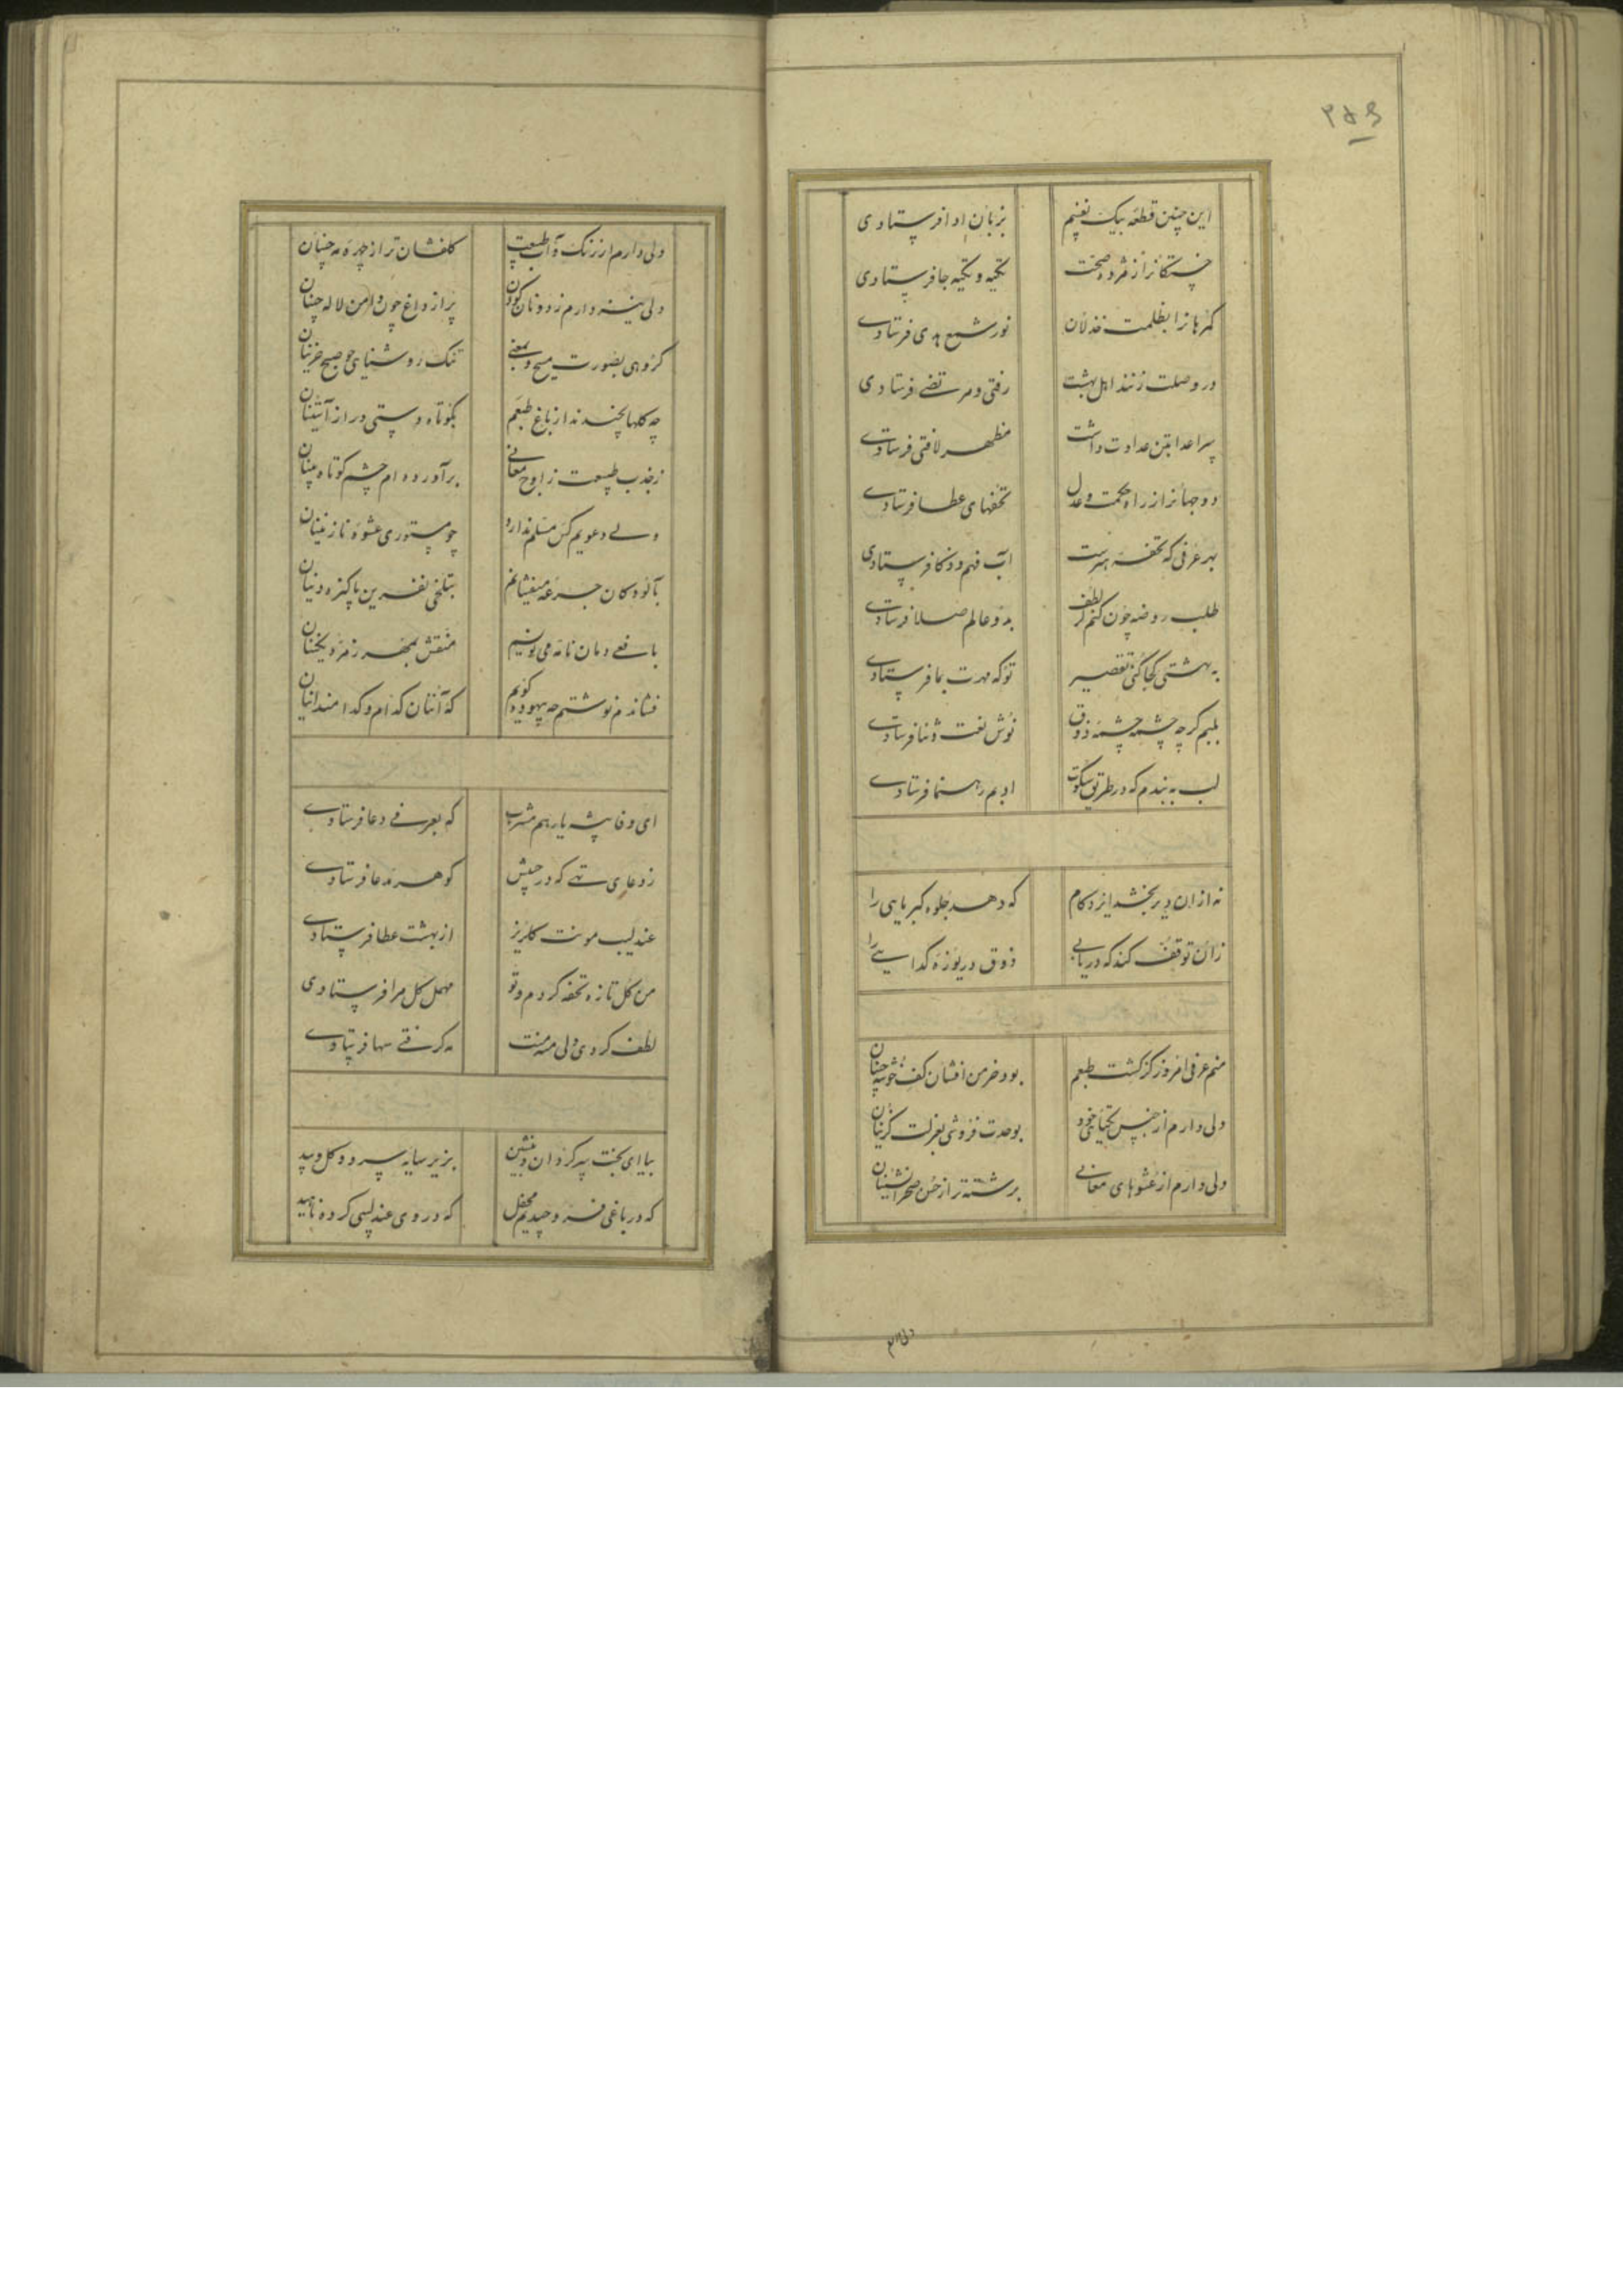 ۲۵۶
این چنین قطعهٔ بیک نغنیم بزبان ادا فرستادی
خستگانرا ز مژده صحت تکیه و تکیه جا فرستادی
گمرهانرا بظلمت خذلان نور شمع هدی فرستادی
در وصلت زنند اهل بهشت رفتی و مرتضی فرستادی
سر اعدا بتن عداوت داشت مظهر لافتی فرستادی
دو جهانرا ز راه حکمت و عدل تحفهای عطا فرستادی
بهر عرفی که تحفه هرست آب فهم و ذکا فرستادی
طلب روضه چون کنم کز لطف بدو عالم صلا فرستادی
به بهشتی کجا کنی تقصیر تو که مهرت بما فرستادی
بلبم گرچه چشمه چشمه ذوق نوش نعت و ثنا فرستادی
لب به بندم که در طریق سکوت ادبم رهنما فرستادی
نه از ان دیر بخشد ایزد کام که دهد جلوه کبریایی را
زان توقف کند که دریابی ذوق دریوزه گدایی را
منم عرفی امروز کز کشت طبعم بود خرمن افشان کف خوشه چینان
ولی دارم از جنس یکتای خود بوحدت فروشی بعزلت گزینان
ولی دارم از عشوهای معانی برشته تر از حسن صحرانشینان
ولی دارم
ولی دارم از رنگ و آب طبیعت گلفشان تر از چهره مه جبینان
ولی نیز دارم ز دونان گردون پر از داغ چون دامن لاله چینان
گروهی بصورت مسیح و بمعنی تنک روشنایی چو صبح خزینان
چه گلها بچندند از باغ طبعم بکوتاه دستی دراز آستینان
ز جذب طبیعت ز اوج معانی برآورده ام چشم کوتاه بینان
ولی دعویم کس مسلم ندارد چو مستوری عشوهٔ نازنینان
بآلودگان جرعه میفشانم بتلخی نفرین پاکیزه دینان
بافعی دمان نامه می نویسیم منقش بمهر زمرد نگینان
فشاندم نوشتم چه بیهوده گویم که آنان کدام و کدامند اینان
ای وفا پیشه یار هم مشرب که بعرفی دعا فرستادی
ز دعای تهی که در جیبش گوهر مدعا فرستادی
عندلیب مونت گلریز از بهشت عطا فرستادی
من گل تازه تحفه کردم و تو مهمل گل مرا فرستادی
لطف کردی ولی منه منت مه گرفتی سها فرستادی
بیا ای بخت پیر گردان و بنشین بزیر سایه سرو و گل و بید
که در باغی فرو چیدیم محفل که در وی عندلیبی کرده ناهید